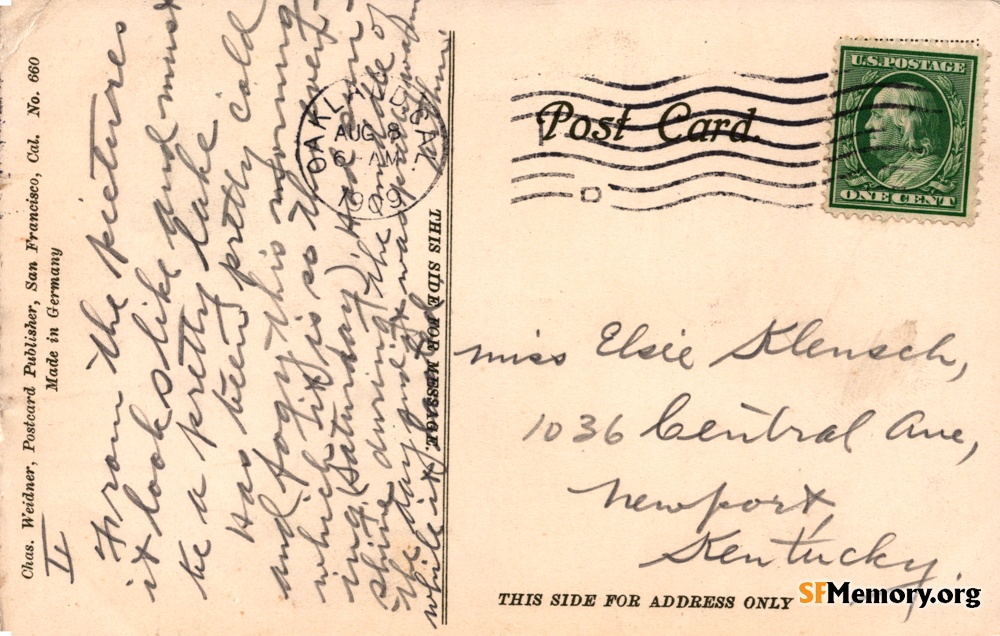 Chas. Weidner, Postcard Publisher, San Francisco, Cal. No. 660
Made in Germany
II
From the pictures
it looks like and must
be a pretty lake
Has been pretty cold
and foggy this morning
which it is so this even-
ing (Saturday). Had sun-
shine during the middle of
the day and it was
while it
THIS SIDE FOR MESSAGE.
OAKLAND, CAL.
AUG 8
6 AM
1909
Post Card
U.S. POSTAGE
ONE CENT
miss Elsie Klensch,
1036 Central Ave,
Newport,
Kentucky.
THIS SIDE FOR ADDRESS ONLY
SFMemory.org